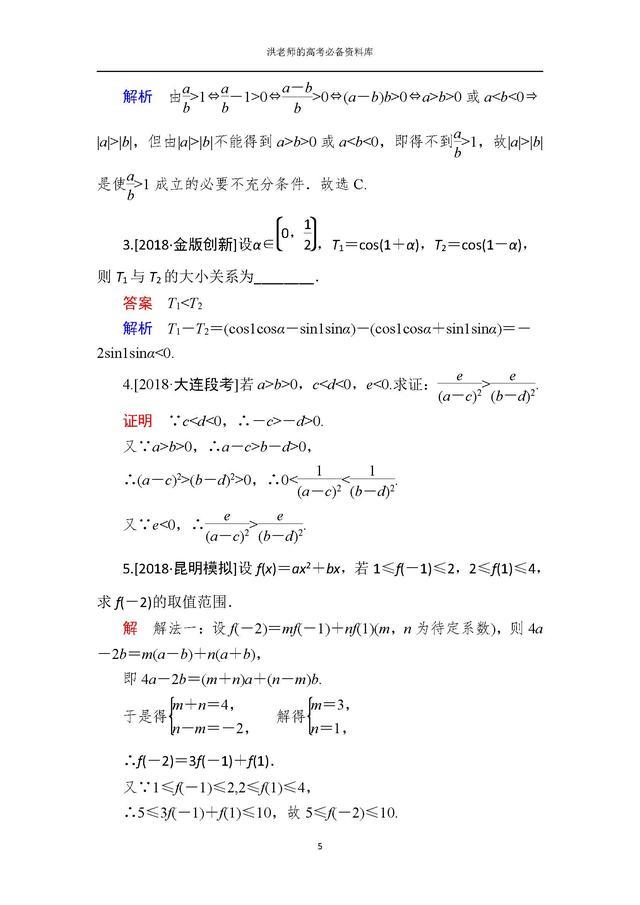 洪老师的高考必备资料库
解析 由a/b>1⇔a/b－1>0⇔(a－b)/b>0⇔(a－b)b>0⇔a>b>0 或 a<b<0⇒
|a|>|b|，但由|a|>|b|不能得到 a>b>0 或 a<b<0，即得不到a/b>1，故|a|>|b|
是使a/b>1 成立的必要不充分条件．故选 C.
3.[2018·金版创新]设α∈[0，1/2]，T₁＝cos(1＋α)，T₂＝cos(1－α)，
则 T₁与 T₂的大小关系为________．
答案 T₁<T₂
解析 T₁－T₂＝(cos1cosα－sin1sinα)－(cos1cosα＋sin1sinα)＝－
2sin1sinα<0.
4.[2018·大连段考]若 a>b>0，c<d<0，e<0.求证：e/(a－c)²>e/(b－d)².
证明 ∵c<d<0，∴－c>－d>0.
又∵a>b>0，∴a－c>b－d>0，
∴(a－c)²>(b－d)²>0，∴0<1/(a－c)²<1/(b－d)².
又∵e<0，∴e/(a－c)²>e/(b－d)².
5.[2018·昆明模拟]设 f(x)＝ax²＋bx，若 1≤f(－1)≤2，2≤f(1)≤4，
求 f(－2)的取值范围．
解 解法一：设 f(－2)＝mf(－1)＋nf(1)(m，n 为待定系数)，则 4a
－2b＝m(a－b)＋n(a＋b)，
即 4a－2b＝(m＋n)a＋(n－m)b.
于是得{m＋n＝4，n－m＝－2， 解得{m＝3，n＝1，
∴f(－2)＝3f(－1)＋f(1)．
又∵1≤f(－1)≤2,2≤f(1)≤4，
∴5≤3f(－1)＋f(1)≤10，故 5≤f(－2)≤10.
5